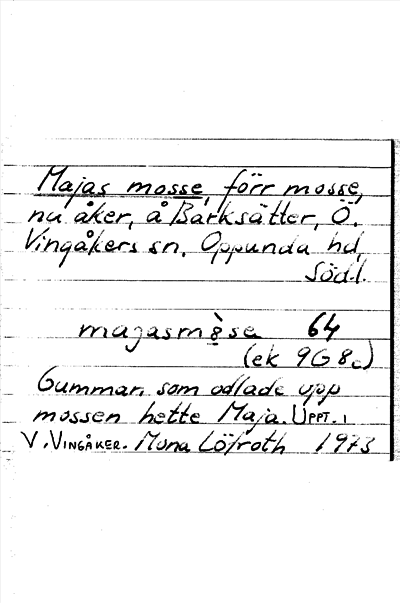 Majas mosse, förr mosse,
nu åker, å Barksätter, Ö.
Vingåkers sn. Oppunda hd,
Södl.
majasmòse 64
(ek 9G 8c)
Gumman som odlade upp
mossen hette Maja. UPPT. i
V. VINGÅKER. Mona Löfroth 1973